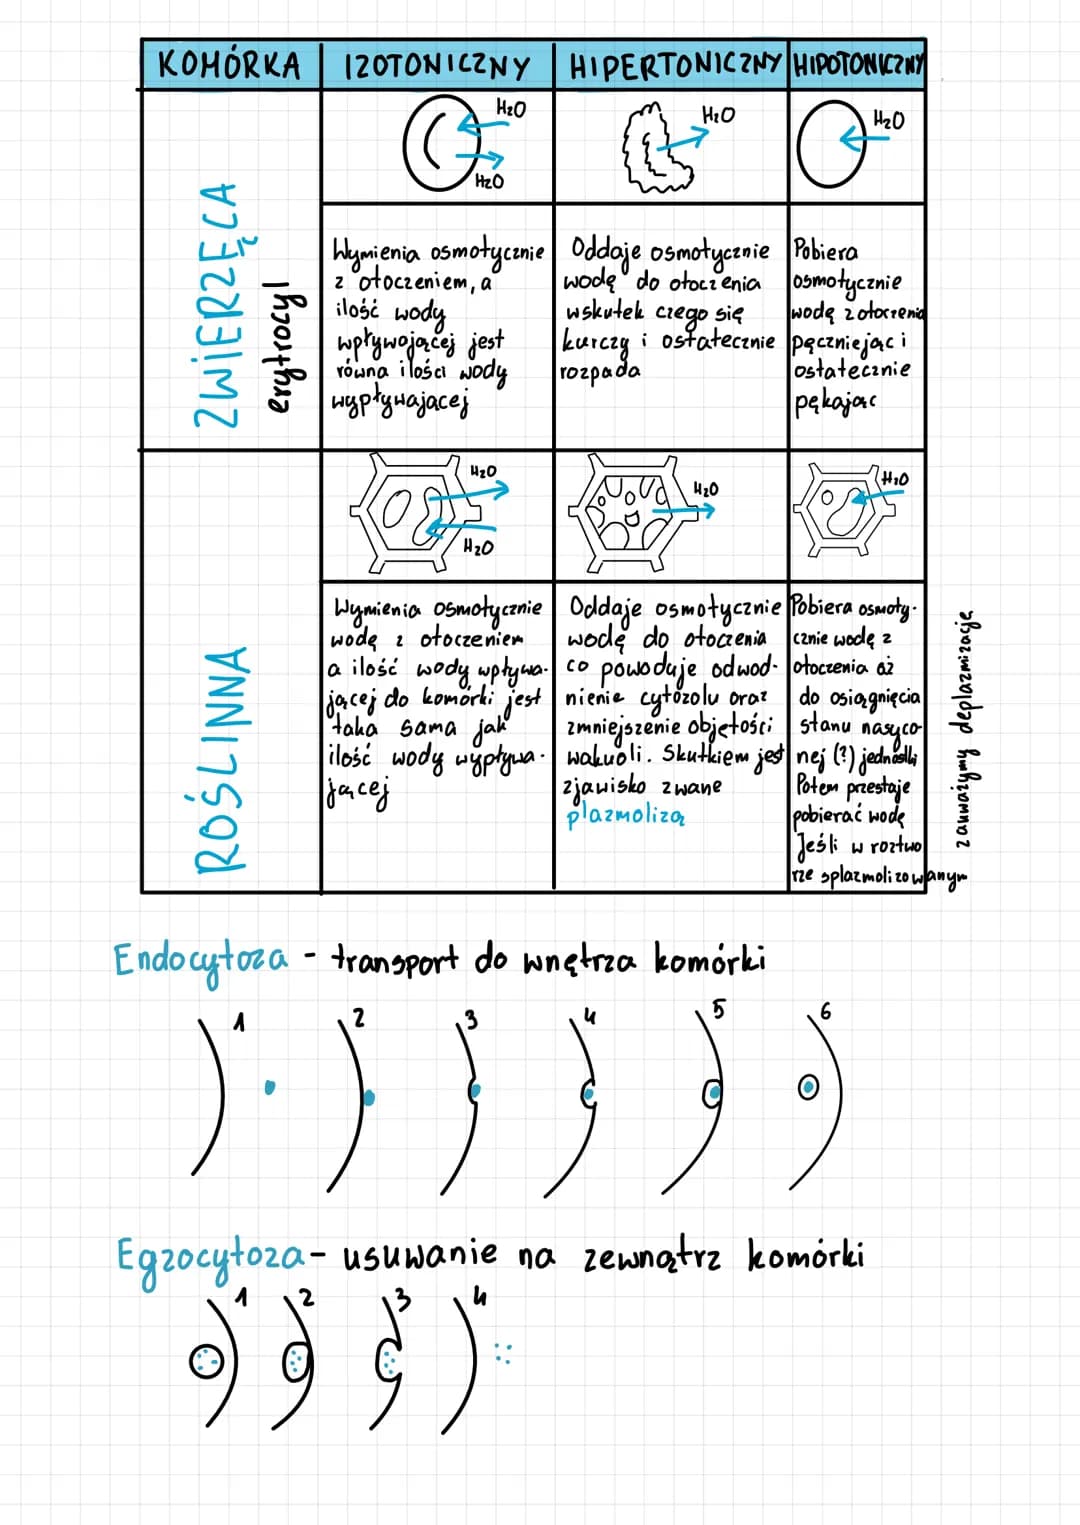 KOMÓRKA IZOTONICZNY HIPERTONICZNY HIPOTONICZNY
H₂O
H₂O
H₂O
H₂O
ZWIERZĘCA
erytrocyl
Wymienia osmotycznie
z otoczeniem, a
ilość wody
wpływojącej jest
równa ilości wody
wypływającej
Oddaje osmotycznie
wodę do otoczenia
wskutek czego się
kurczy i ostatecznie
rozpada
Pobiera
osmotycznie
wodę z otoczenia
pęczniejąc i
ostatecznie
pękając
H₂O
H₂O
H₂O
H₂O
ROŚLINNA
Wymienia osmotycznie
wodę z otoczeniem
a ilość wody wpływa-
jącej do komórki jest
taka sama jak
ilość wody wypływa-
jącej
Oddaje osmotycznie
wodę do otoczenia
co powoduje odwod-
nienie cytozolu oraz
zmniejszenie objętości
wakuoli. Skutkiem jest
zjawisko zwane
plazmolizą
Pobiera osmoty-
cznie wodę z
otoczenia aż
do osiągnięcia
stanu nasyco-
nej (?) jednostki
Potem przestaje
pobierać wodę
Jeśli w roztwo
rze splazmolizowanym
zauważymy deplazmizację
Endocytoza - transport do wnętrza komórki
1 2 3 4 5 6
Egzocytoza - usuwanie na zewnątrz komórki
1 2 3 4